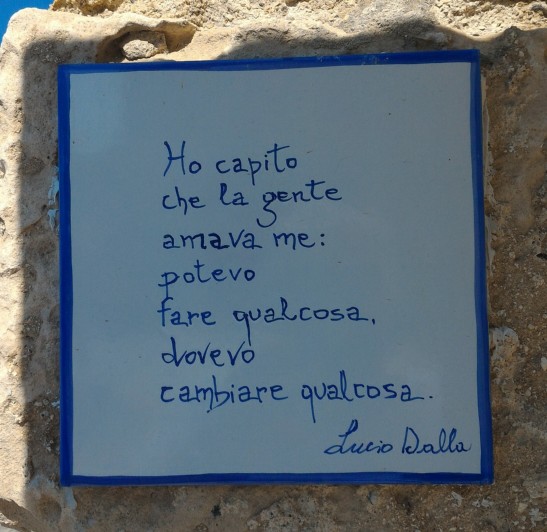 Ho capito
che la gente
amava me:
potevo
fare qualcosa,
dovevo
cambiare qualcosa.
Lucio Dalla